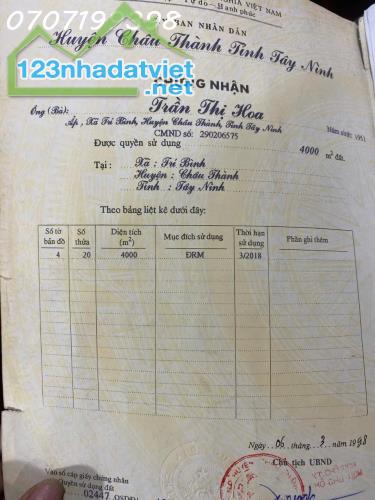 NGHĨA VIỆT NAM
Tự do - Hạnh phúc
070719
BAN NHÂN DÂN
Huyện Châu Thành Tỉnh Tây Ninh
123nhadatviet
.net
NHẬN
Ông (Bà): Trần Thị Hoa
Năm sinh: 1951
Ấp, Xã Trí Bình, Huyện Châu Thành, Tỉnh Tây Ninh
CMND số: 290206575
Được quyền sử dụng 4000 m² đất.
Tại : Xã : Trí Bình
Huyện : Châu Thành
Tỉnh : Tây Ninh
Theo bảng liệt kê dưới đây:
Số tờ bản đồ Số thửa Diện tích (m²) Mục đích sử dụng Thời hạn sử dụng Phần ghi thêm
4 20 4000 ĐRM 3/2018
Ngày 06 tháng 3 năm 1998
Chủ tịch UBND
Vào sổ cấp giấy chứng nhận
Quyền sử dụng đất
02447 QSDĐ